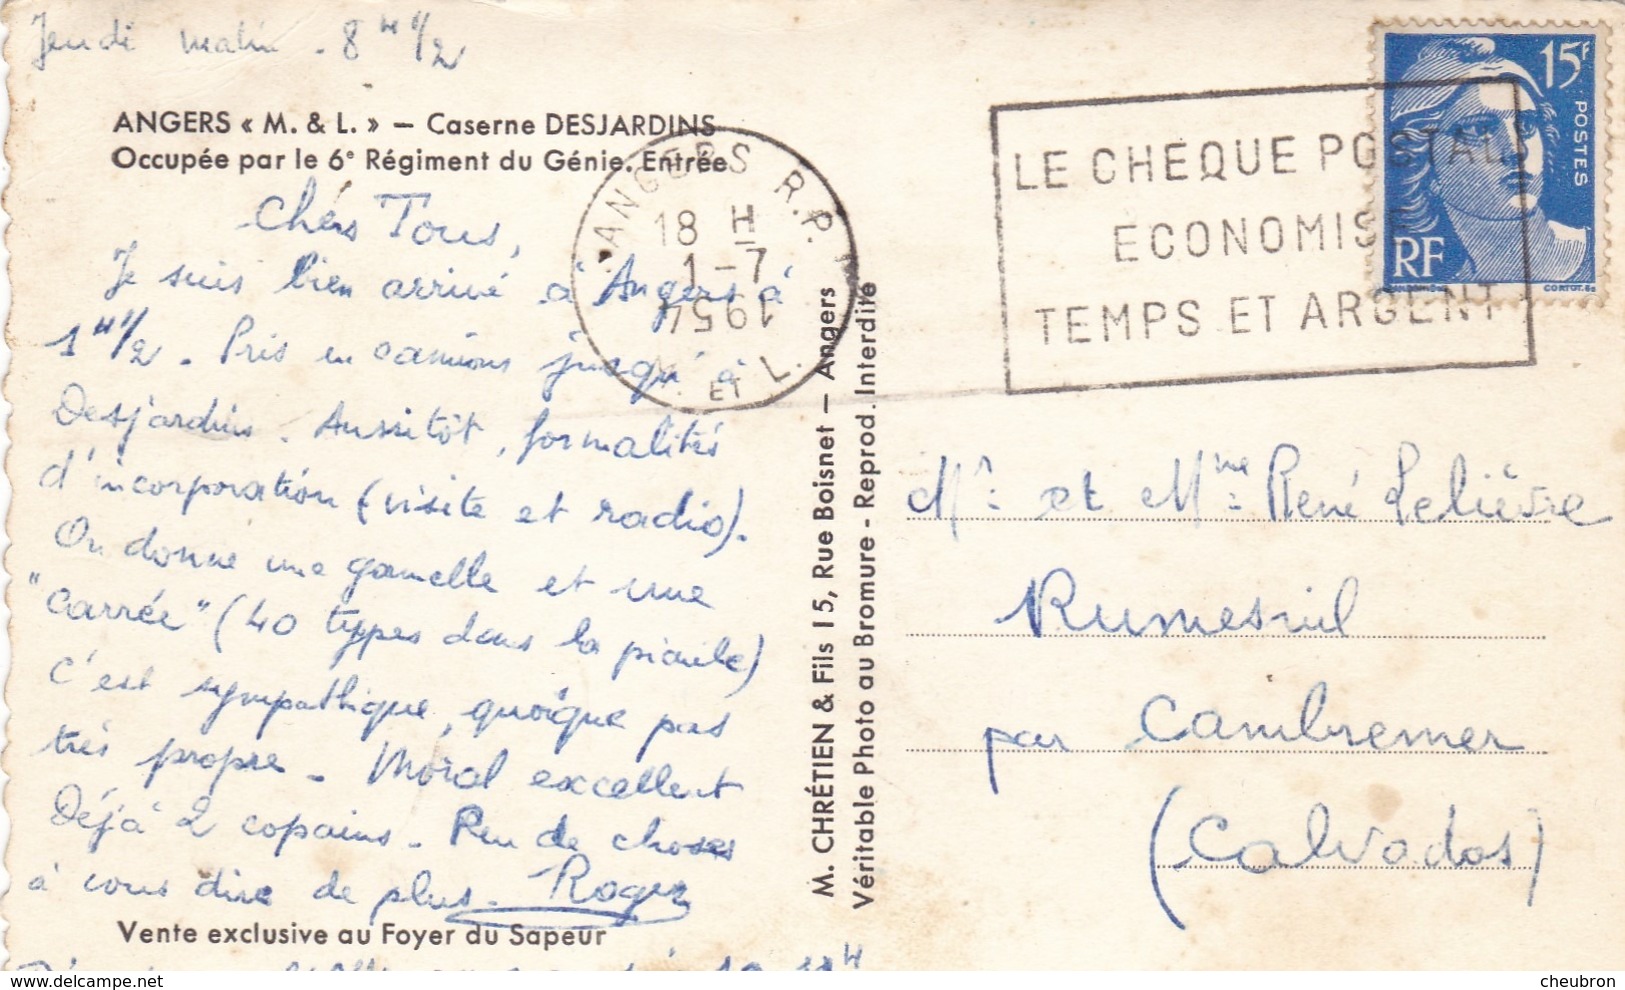 Jeudi matin - 8 H 1/2
ANGERS « M. & L. » — Caserne DESJARDINS
Occupée par le 6e Régiment du Génie. Entrée
Chérs Tous,
Je suis bien arrivé à Angers à
1 H 1/2. Pris en camions jusqu'à
Desjardins. Aussitôt, formalités
d'incorporation (visite et radio).
On donne une gamelle et une
"carrée" (40 types dans la piaule)
C'est sympathique, quoique pas
très propre. Moral excellent
Déjà 2 copains. Peu de choses
à vous dire de plus. Roger
Vente exclusive au Foyer du Sapeur
M. CHRÉTIEN & Fils 15, Rue Boisnet — Angers
Véritable Photo au Bromure - Reprod. Interdite
ANGERS R.P.
18 H
1-7
1954
ET L.
LE CHEQUE POSTAL
ECONOMISE
TEMPS ET ARGENT
15F
POSTES
RF
CORTOT.
Mr et Mme René Lelièvre
Rumesnil
par Cambremer
(Calvados)
cheubron.com